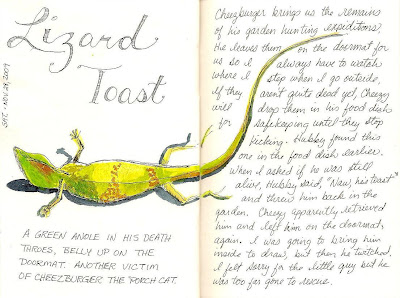 Lizard
Toast
SAT · NOV 28, 2009
A GREEN ANOLE IN HIS DEATH
THROES, BELLY UP ON THE
DOORMAT. ANOTHER VICTIM
OF CHEEZBURGER THE PORCH CAT.
Cheezburger brings us the remains
of his garden hunting expeditions.
He leaves them on the doormat for
us so I always have to watch
where I step when I go outside.
If they aren't quite dead yet, Cheezy
will drop them in his food dish
for safekeeping until they stop
kicking. Hubby found this
one in the food dish earlier.
When I asked if he was still
alive, Hubby said, "Naw, he's toast"
and threw him back in the
garden. Cheezy apparently retrieved
him and left him on the doormat,
again. I was going to bring him
inside to draw, but then he twitched.
I felt sorry for the little guy but he
was too far gone to rescue.